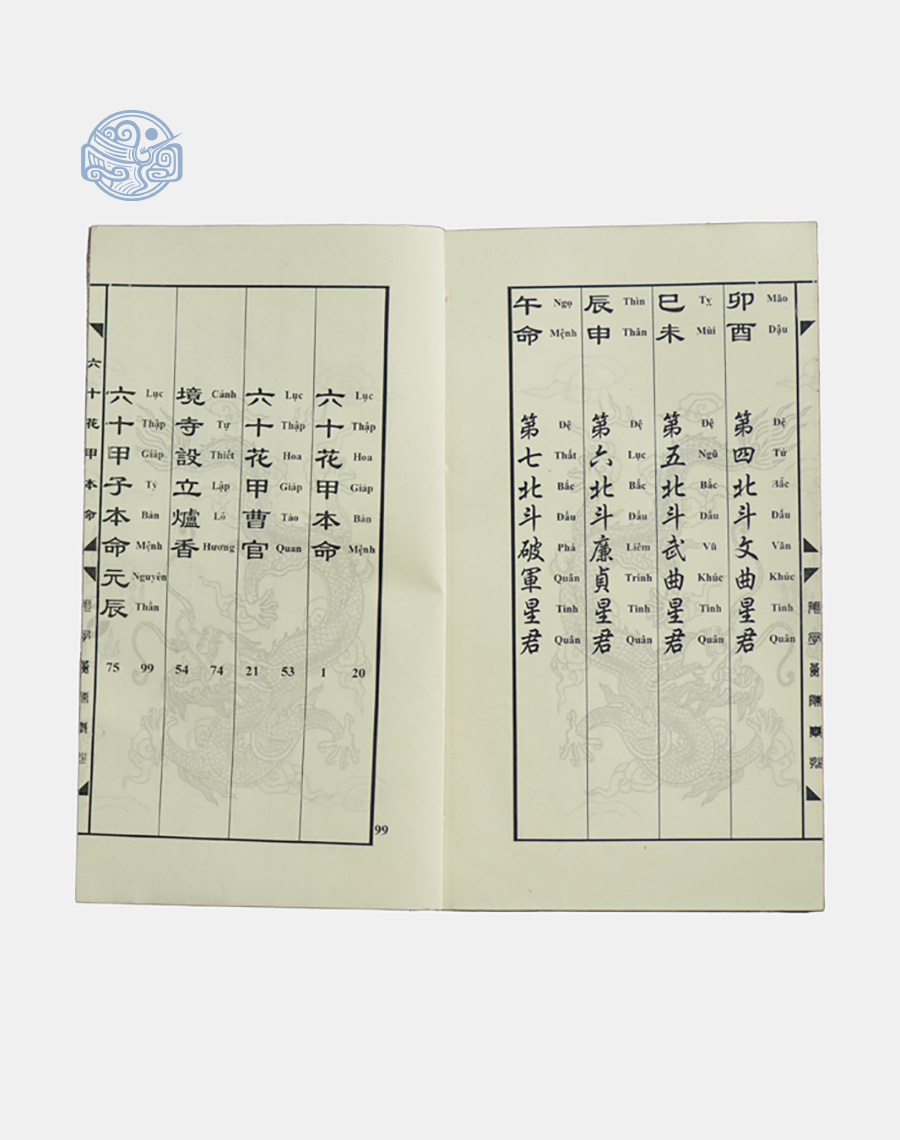 卯酉 第四北斗文曲星君
Mão Dậu Đệ Tứ Bắc Đẩu Văn Khúc Tinh Quân
巳未 第五北斗武曲星君
Tỵ Mùi Đệ Ngũ Bắc Đẩu Vũ Khúc Tinh Quân
辰申 第六北斗廉貞星君
Thìn Thân Đệ Lục Bắc Đẩu Liêm Trinh Tinh Quân
午命 第七北斗破軍星君
Ngọ Mệnh Đệ Thất Bắc Đẩu Phá Quân Tinh Quân
六十花甲本命
Lục Thập Hoa Giáp Bản Mệnh
1 20
六十花甲曹官
Lục Thập Hoa Giáp Tào Quan
21 53
境寺設立爐香
Cảnh Tự Thiết Lập Lô Hương
54 74
六十甲子本命元辰
Lục Thập Giáp Tý Bản Mệnh Nguyên Thần
75 99
六十花甲本命
99